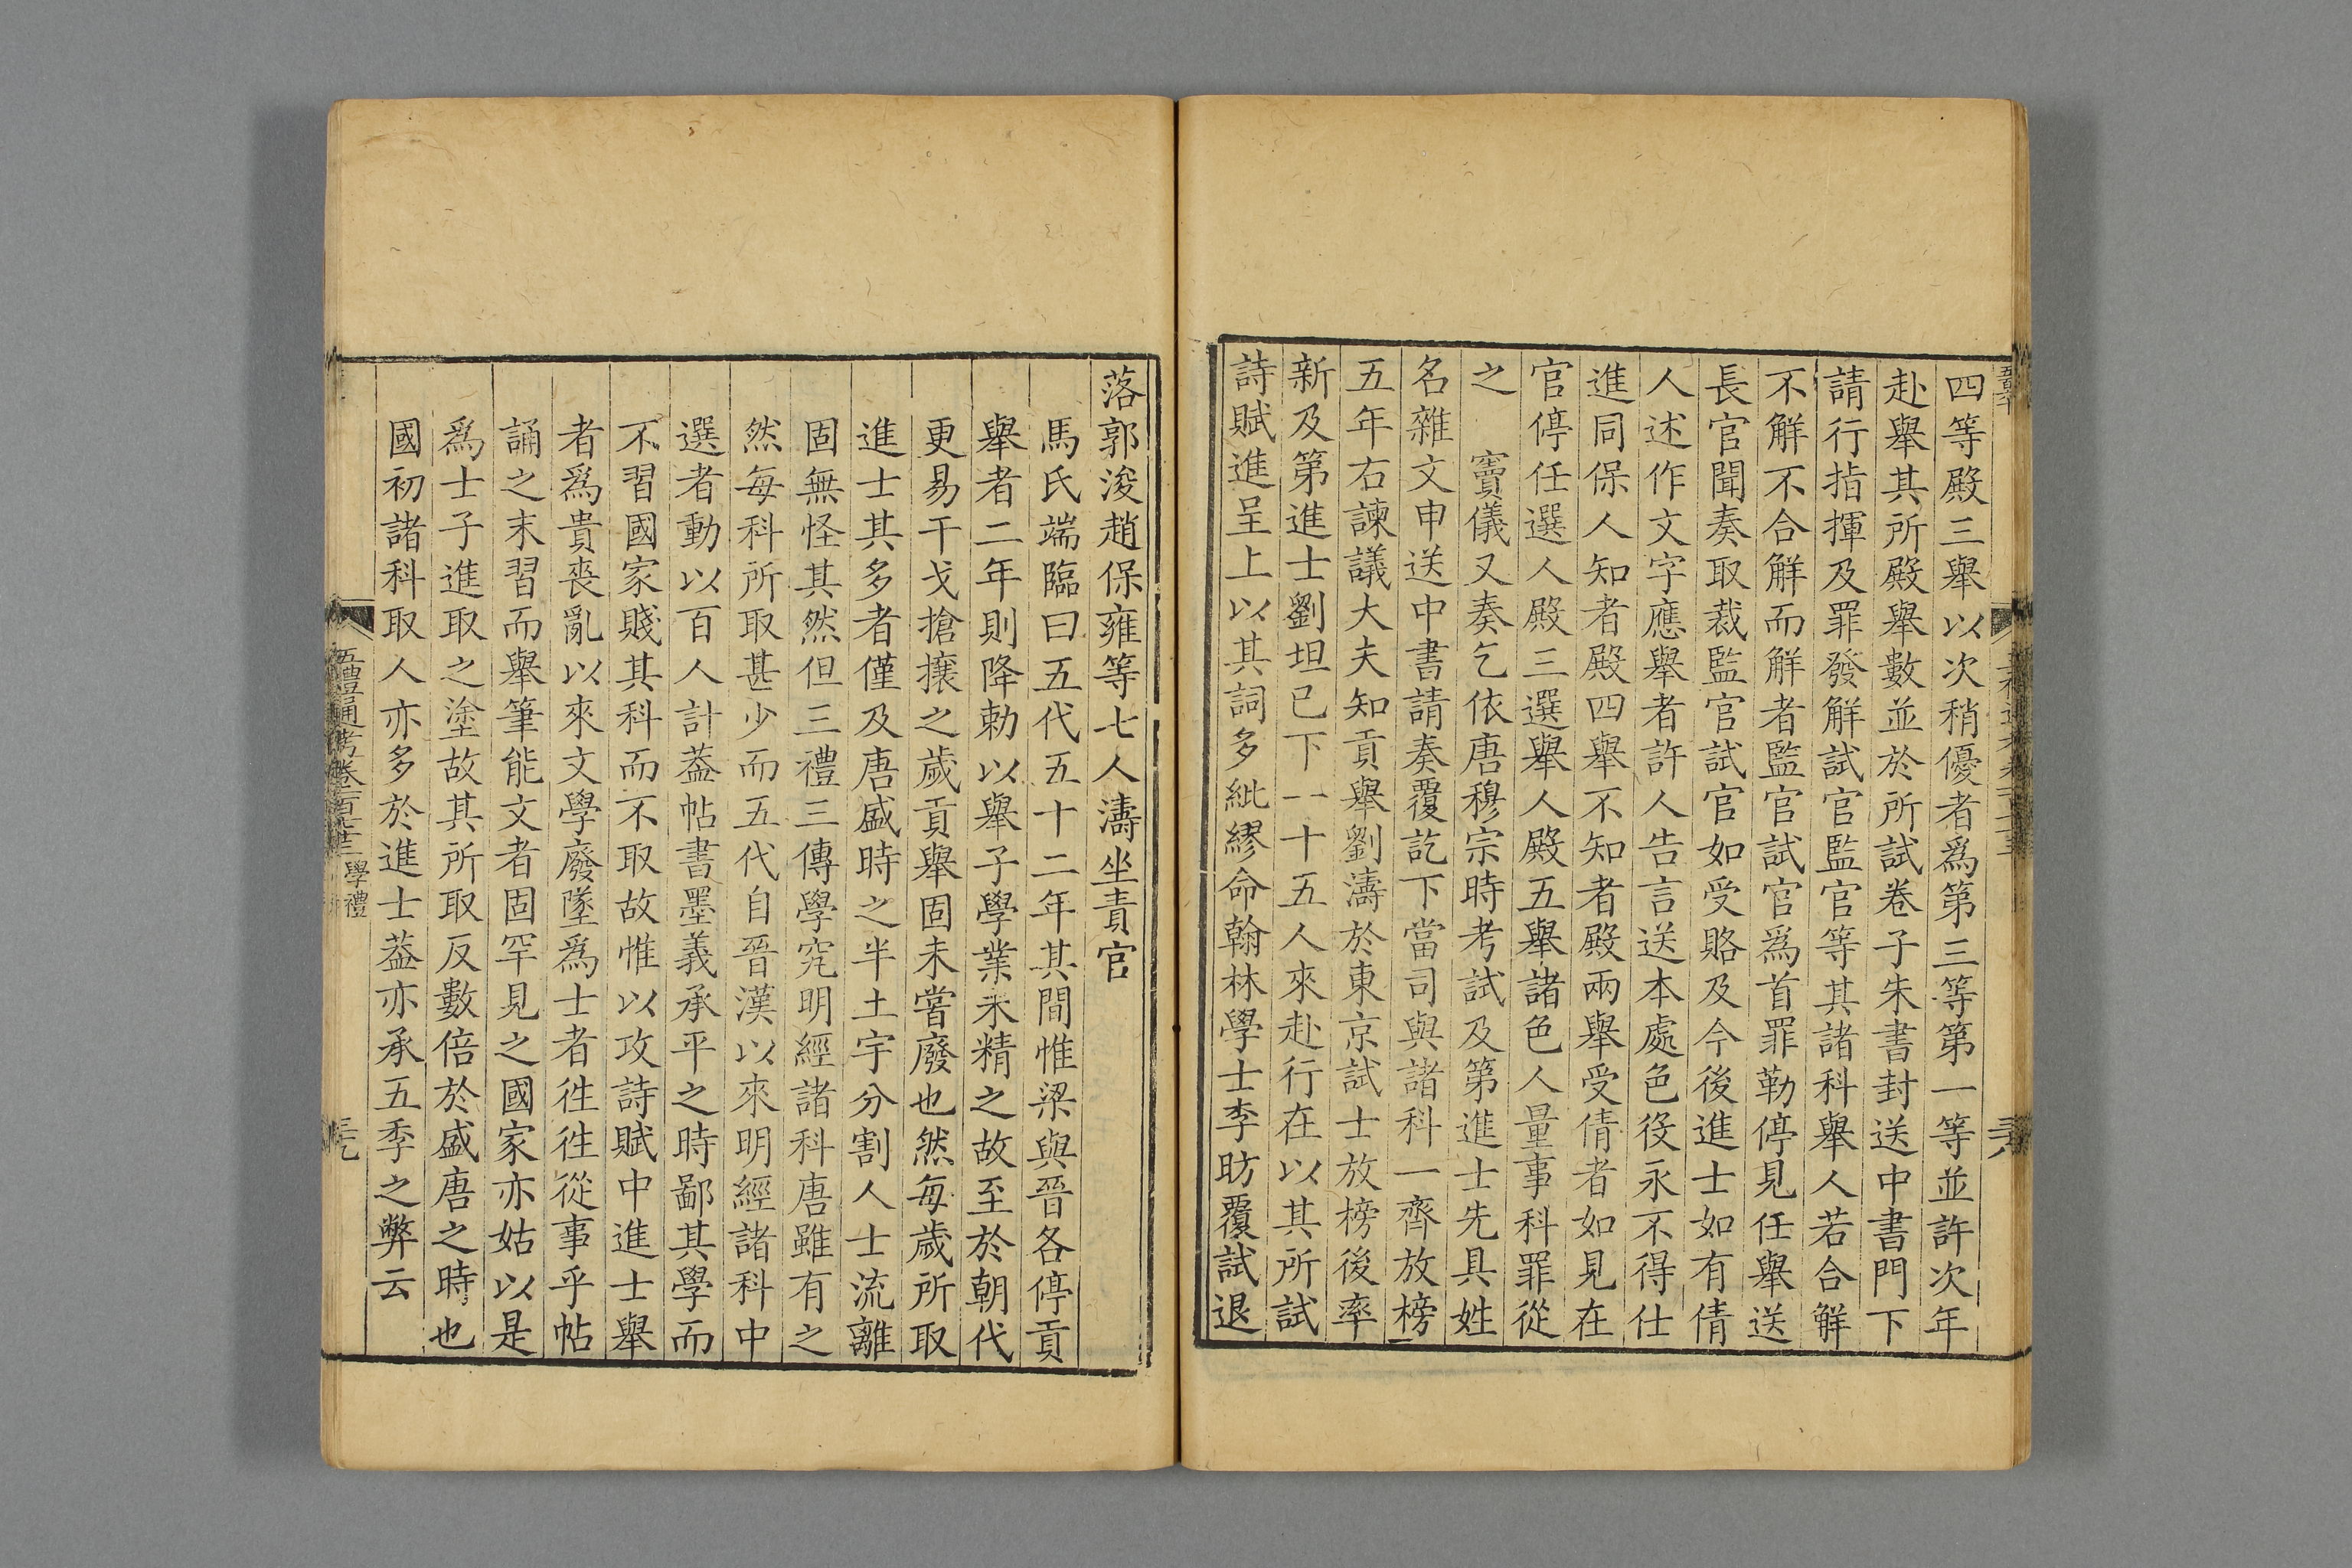 四等殿三舉以次稍優者爲第三等第一等並許次年
赴舉其所殿舉數並於所試卷子朱書封送中書門下
請行指揮及罪發解試官監官等其諸科舉人若合解
不解不合解而解者監官試官爲首罪勒停見任舉送
長官聞奏取裁監官試官如受賂及今後進士如有倩
人述作文字應舉者許人告言送本處色役永不得仕
進同保人知者殿四舉不知者殿兩舉受倩者如見在
官停任選人殿三選舉人殿五舉諸色人量事科罪從
之　竇儀又奏乞依唐穆宗時考試及第進士先具姓
名雜文申送中書請奏覆訖下當司與諸科一齊放榜
五年右諫議大夫知貢舉劉濤於東京試士放榜後率
新及第進士劉坦已下一十五人來赴行在以其所試
詩賦進呈上以其詞多紕繆命翰林學士李昉覆試退
落郭浚趙保雍等七人濤坐責官
馬氏端臨曰五代五十二年其間惟梁與晉各停貢
舉者二年則降勅以舉子學業未精之故至於朝代
更易干戈搶攘之歲貢舉固未嘗廢也然每歲所取
進士其多者僅及唐盛時之半土宇分割人士流離
固無怪其然但三禮三傳學究明經諸科唐雖有之
然每科所取甚少而五代自晉漢以來明經諸科中
選者動以百人計葢帖書墨義承平之時鄙其學而
不習國家賤其科而不取故惟以攻詩賦中進士舉
者爲貴喪亂以來文學廢墜爲士者徃徃從事乎帖
誦之末習而舉筆能文者固罕見之國家亦姑以是
爲士子進取之塗故其所取反數倍於盛唐之時也
國初諸科取人亦多於進士葢亦承五季之弊云
五禮通考卷一百七十三
學禮